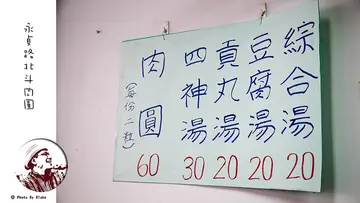 永貞路北斗肉圓
綜合湯 20
豆腐湯 20
貢丸湯 20
四神湯 30
肉圓 60
(每份二粒)
© Photo By Aloha